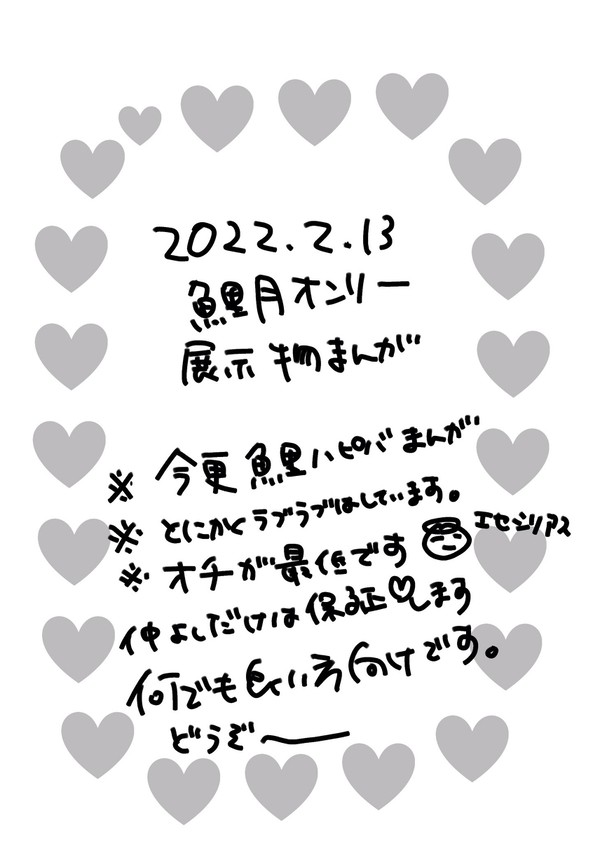 2022.2.13
鯉月オンリー
展示物まんが
※ 今更 鯉ハピバ まんが
※ とにかく ラブラブはしています。
※ オチが最低です エセシリアス
仲よしだけは保証♡します
何でも良い方向けです。
どうぞ〜